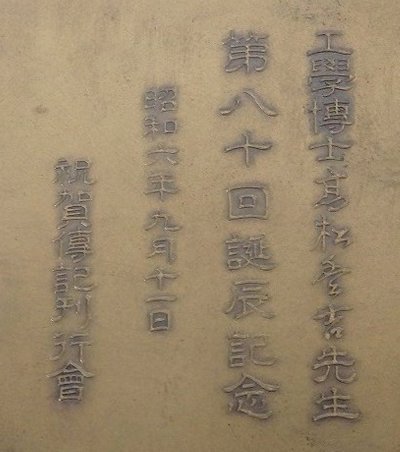 工學博士高松豊吉先生
第八十回誕辰記念
昭和六年九月十一日
祝賀傳記刊行會